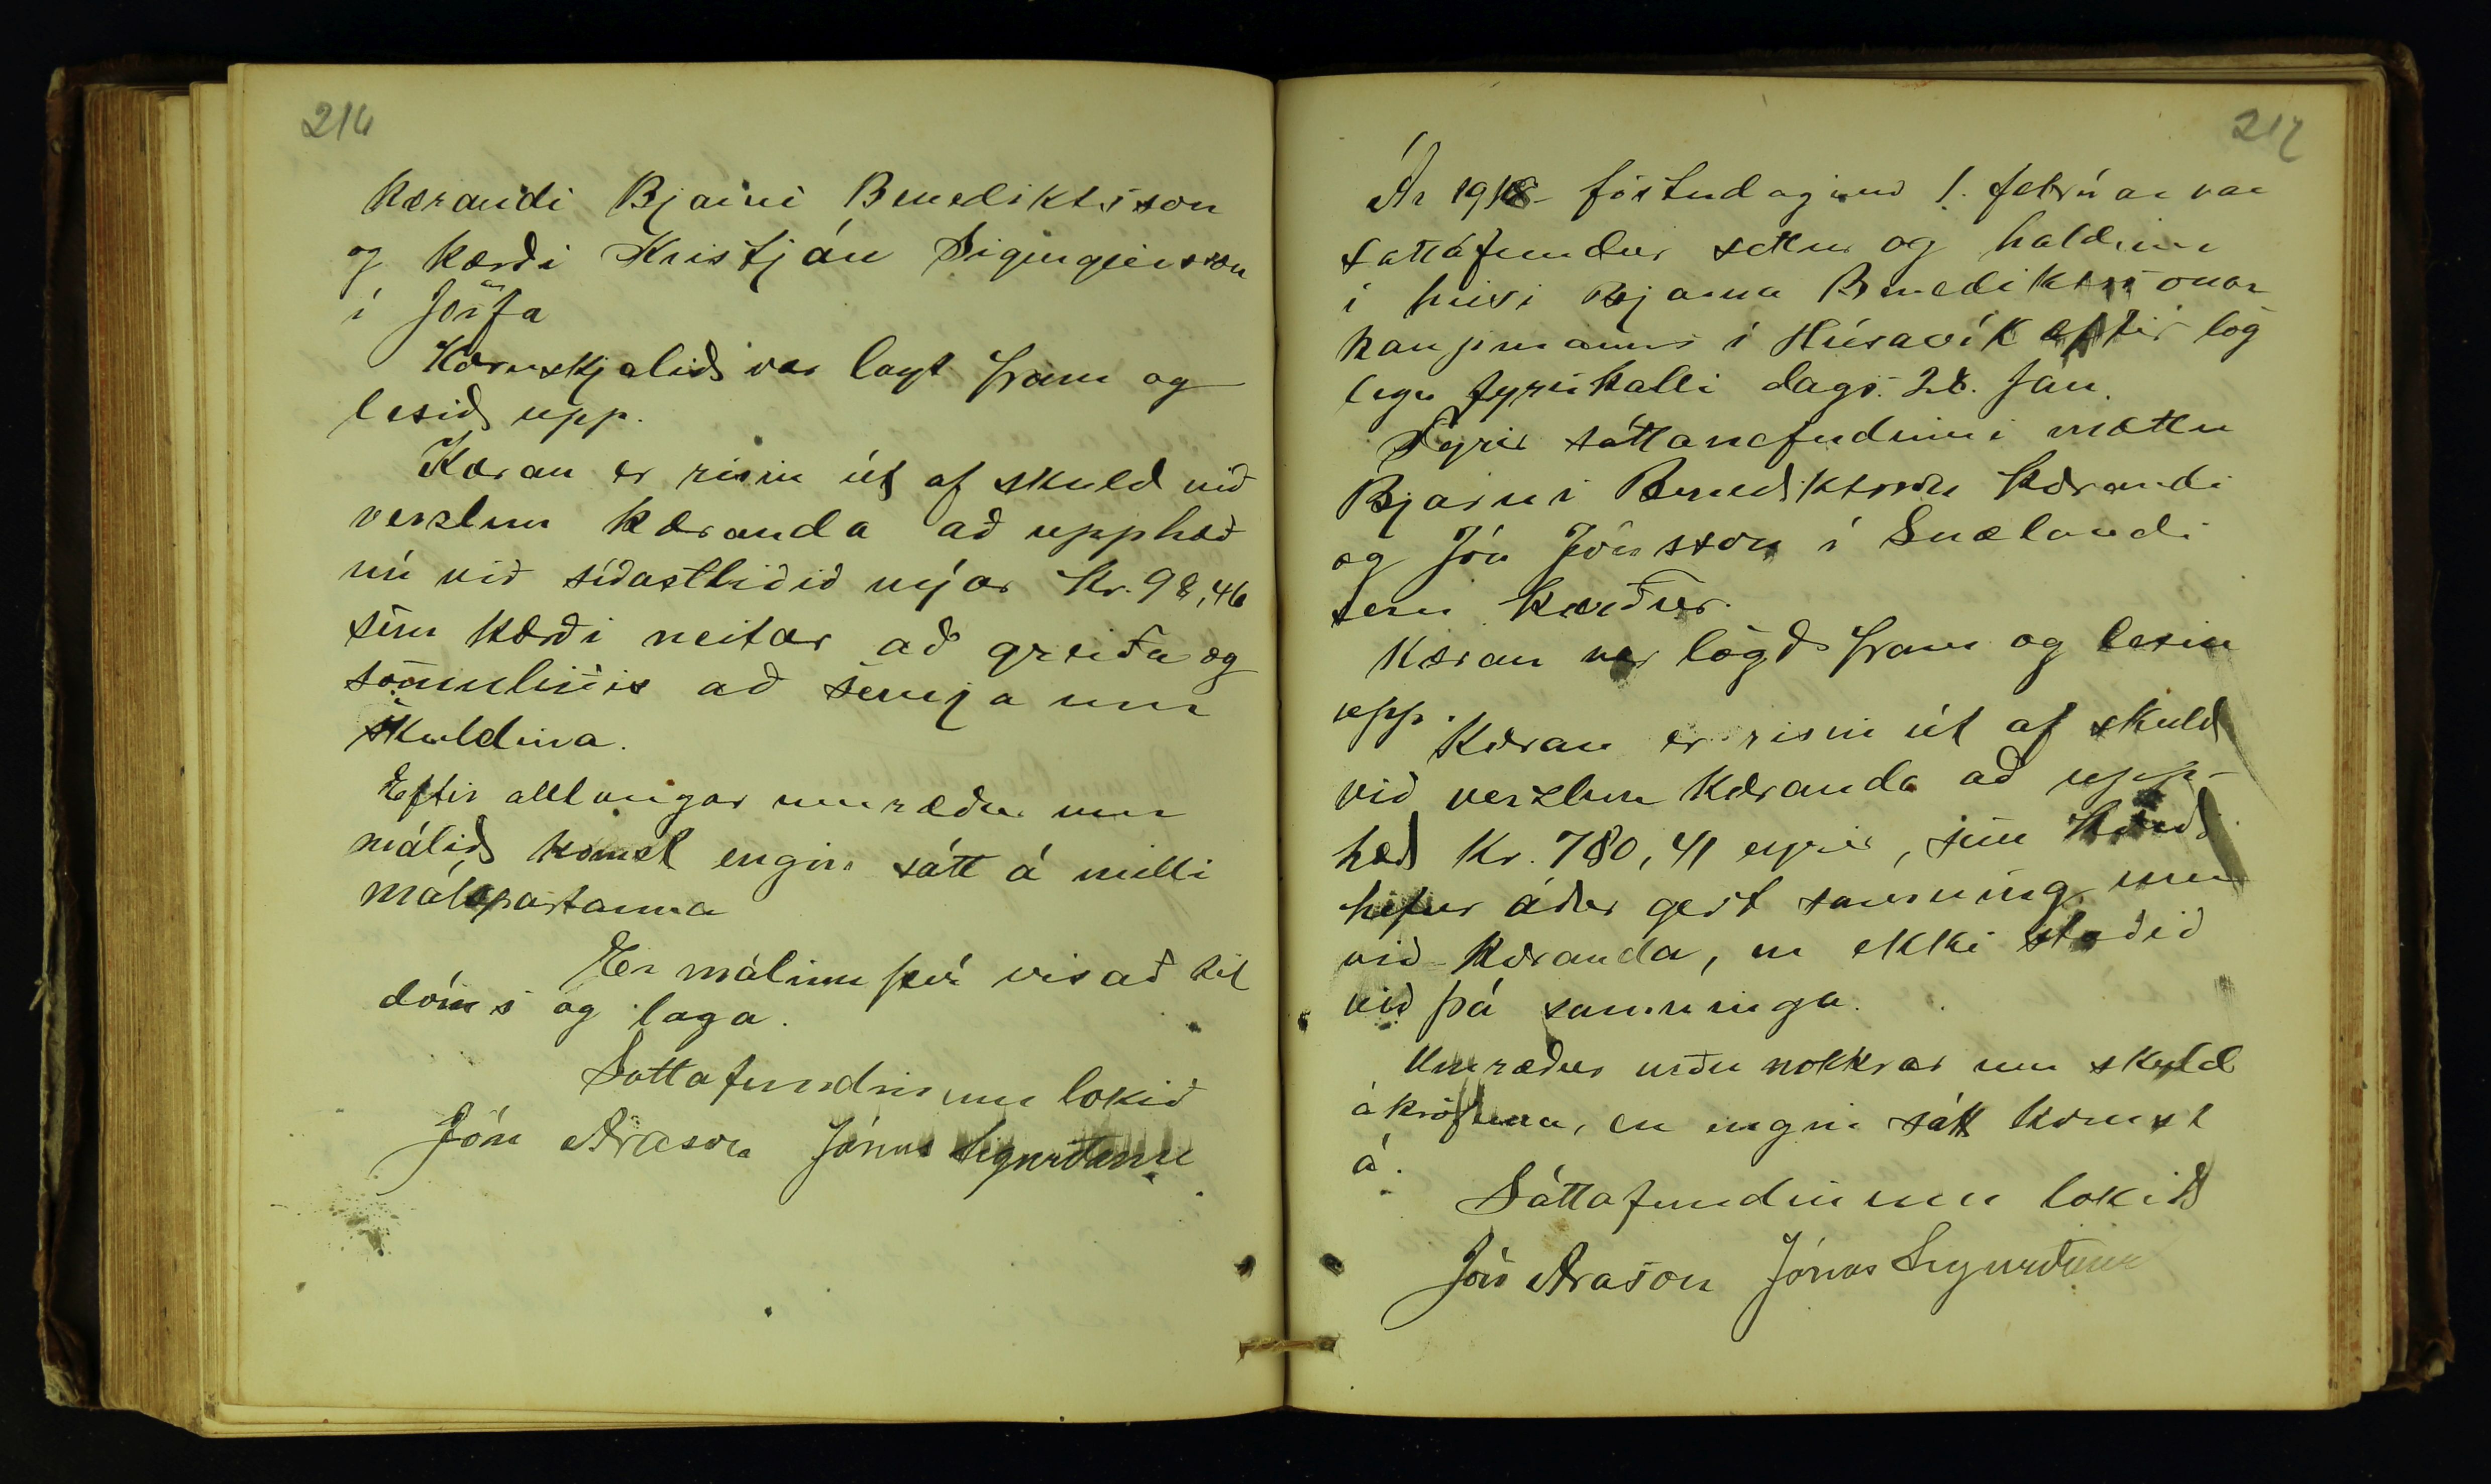 216
kærandi Bjarni Benediktsson
og kærði Kristján Sigurgeirsson
í Jörfa
Kæruskjalið var lagt fram og
lesið upp.
Kæran er risin út af skuld við
verzlun kæranda að upphæð
nú við síðastliðið nýár kr. 98,46
sem kærði neitar að greiða og
sömuleiðis að semja um
skuldina.
Eftir alllangar umræður um
málið komst engin sátt á milli
málspartanna
Er málinu því vísað til
dóms og laga.
Sattafundinum lokið
Jón Arason Jónas Sigurðsson
217
Ár 1918 föstudaginn 1. febrúar var
sattafundur settur og haldinn
í húsi Bjarna Benediktssonar
kaupmanns í Húsavík eftir lög
legu fyrirkalli dags. 28. Jan.
Fyrir sáttanefndinni mættu
Bjarni Benediktsson kærandi
og Jón Jónsson í Snælandi
sem kærður.
Kæran var lögð fram og lesin
upp.
Kæran er risin út af skuld
við verzlun kæranda að upp-
hæð kr. 780,41 eyrir, sem kærði
hefur áður gert samning um
við kæranda, en ekki staðið
við þá samninga.
Umræður urðu nokkrar um skuld
ákröfuna, en engin sátt komst
á.
Sáttafundinum lokið
Jón Arason Jónas Sigurðsson